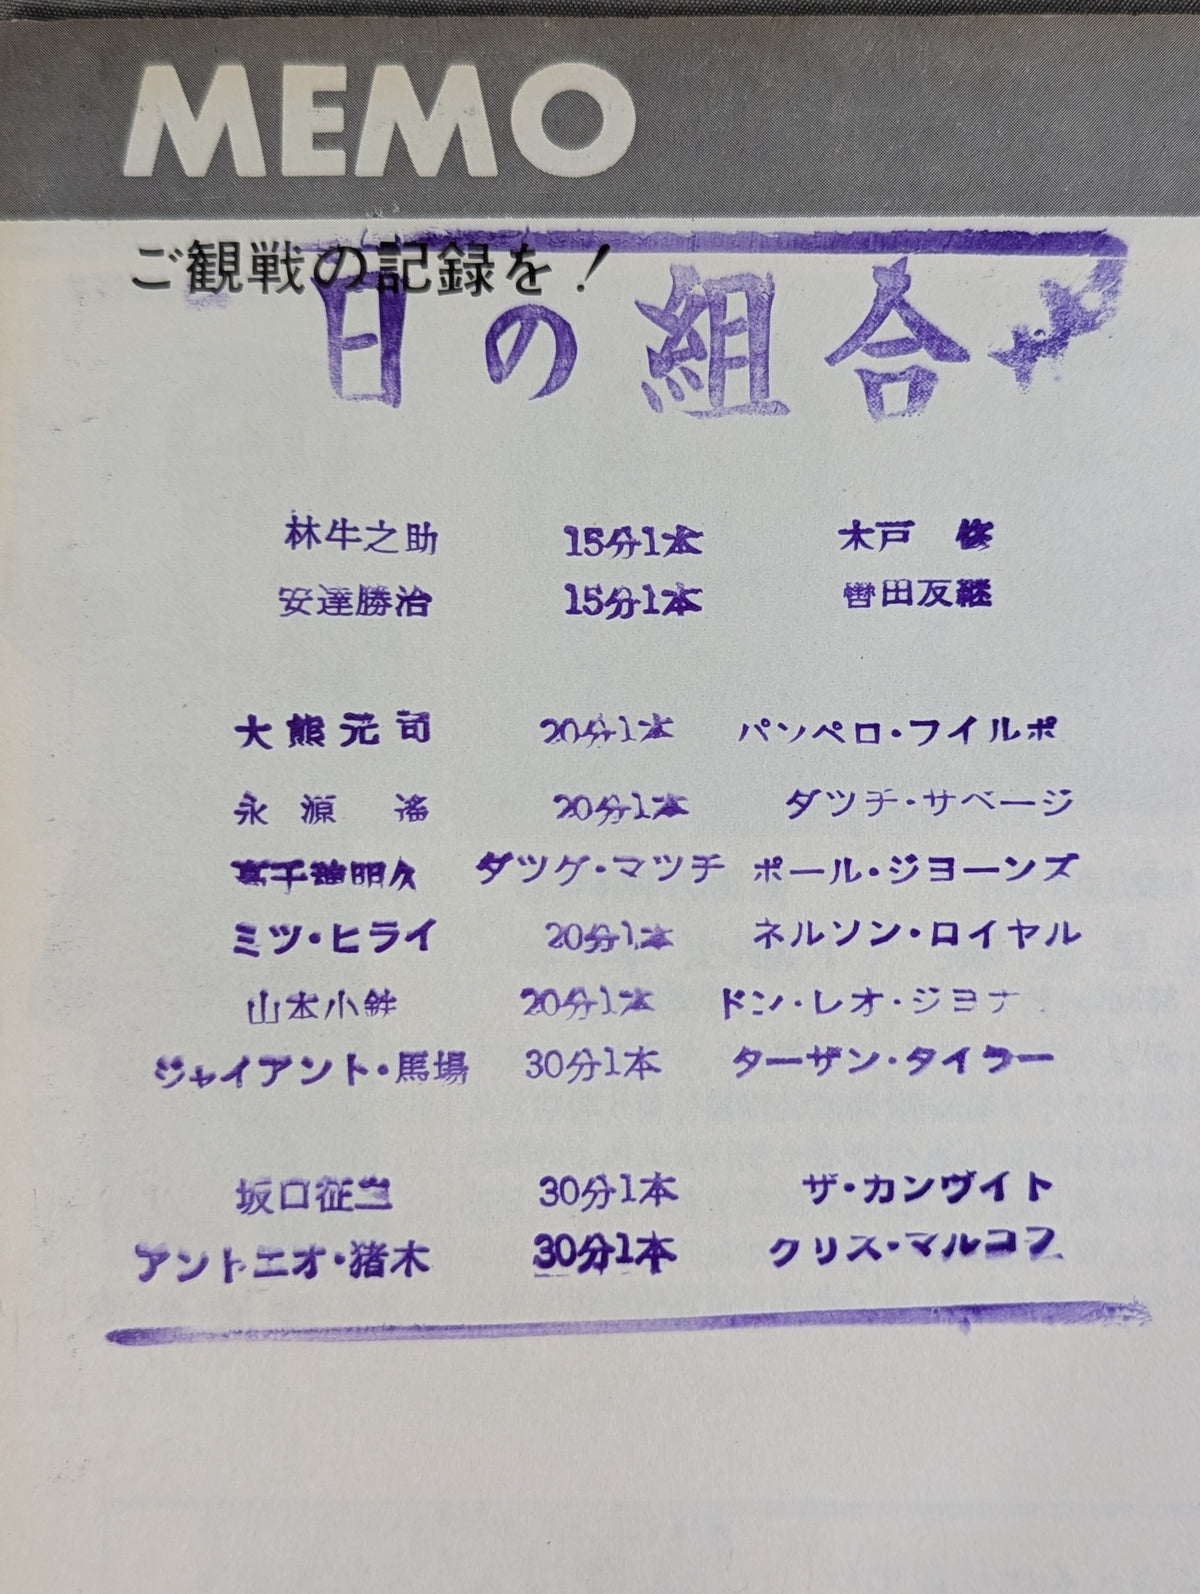 MEMO
ご観戦の記録を!
日の組合
林牛之助 15分1本 木戸 修
安達勝治 15分1本 轡田友継
大熊元司 20分1本 パンペロ・フイルポ
永源 遙 20分1本 ダツチ・サベージ
高千穂明久 ダツグ・マツチ ポール・ジヨーンズ
ミツ・ヒライ 20分1本 ネルソン・ロイヤル
山本小鉄 20分1本 ドン・レオ・ジヨナ
ジャイアント・馬場 30分1本 ターザン・タイラー
坂口征二 30分1本 ザ・カンヴイト
アントニオ・猪木 30分1本 クリス・マルコフ